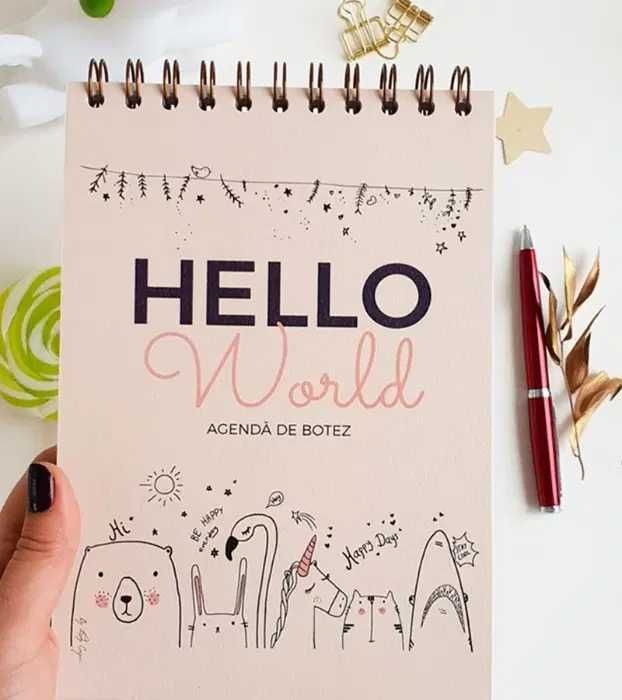 HELLO
World
AGENDĂ DE BOTEZ
Hi
BE HAPPY
everyday
Hey
Happy Days
STAY
COOL